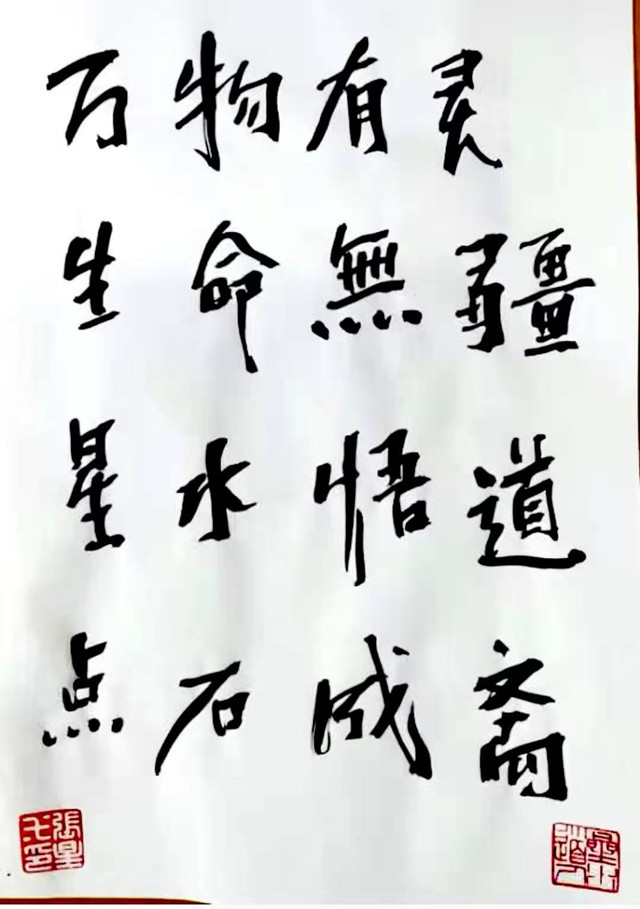 万物有灵
生命無疆
星水悟道
点石成斋
张星
之印